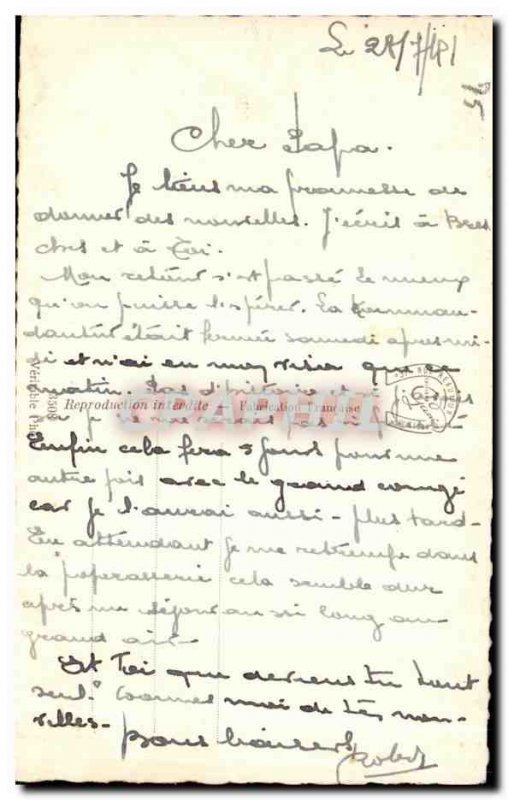 Le 28/7/41
Cher Papa.
Je tiens ma promesse de
donner des nouvelles. J'écris à
et à Toi.
Mon retour s'est passé le mieux
qu'on puisse l'espérer. La Komman-
dantur était fermée samedi après-mi-
di et n'ai eu mon visa que ce
matin. Pas d'histoire
Reproduction interdite Fabrication Française
Véritable
Enfin cela fera 5 jours pour une
autre fois avec le grand congé
car je l'aurai aussi - plus tard -
En attendant je me retrempe dans
la "paperasserie cela semble dur
après un séjour aussi long au
grand air -
Et Toi que deviens tu tout
seul? Donnes moi de tes nou-
velles -
Bons baisers
Robert